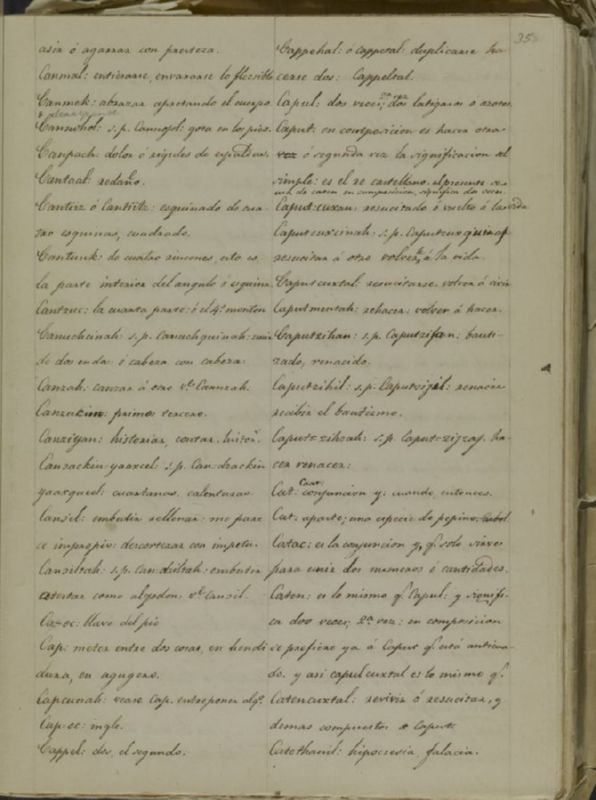 35
asir ó agarrar con presteza.
Canmal: entiesarse, envararse lo flexible
Canmek: abrazar apretando el cuerpo
Canpach: dolor ó
Cantaal: redaño.
Cantirz ó Cantiitz: esquinado de cua-
tro esquinas, cuadrado.
Cantunk: de cuatro rincones, esto es
la parte interior del angulo ó esquina.
Cantzuc: la cuarta parte: ó el 4º monton
Canuchcinah: s.p. Canuchquinah: unir
de dos en dos: ó cabeza con cabeza.
Canzah: cansar á otro vº. Caanzah.
primos tercero.
Canziyan: historiar, contar, histor.
Canzackin-yaaxcel: s.p.
yaaxqueel: cuartanas, calenturas
Cansil: embutir rellenar: me pare-
ce impropio: descortezar con impetu.
Cansiltah: s.p. embutir
atestar como algodon: vº. Cansil.
Caz-oc: llave del pie
Cap: meter entre dos cosas, en hendi-
dura, en agugero.
Capcunah: vease Cap. entreponer algº.
Cap-ec: ingle.
Cappel: dos, el segundo.
Cappehal: ó cappelal: duplicarse ha-
cerse dos: Cappeltal.
Capul: dos veces; 2ª vez dos latigazos ó azotes.
Caput: en composicion es hacer otra
vez ó segunda vez la significacion del
simple: es el re castellano. el presente se
usa de caten en composicion, significa dos veces.
Caputcuxan: resucitado ó vuelto á la vida
Caputcuxcinah: s.p. Caputcuxquinaj
resucitar á otro volverle á la vida.
Caputcuxtal: resucitarse. volver á vivir
Caputmentah: rehacer: volver á hacer.
Caputzihan: s.p. Caputzijan: bauti-
zado, renacido.
Caputzihil: s.p. Caputzijil: renacer
recibir el bautismo.
Caput-zihzah: s.p. Caput-zijzaj. ha-
cer renacer:
Cat: conjuncion y: cuando, entonces.
Cat: aparte; una especie de pepino, arbol
Catac: es la conjuncion y, q. solo sirve
para unir dos numeros ó cantidades.
Caten: es lo mismo q. Capul: y signifi-
ca dos veces; 2ª vez: en composicion
se prefiere ya á Caput q. está anticua-
do. y asi caputcuxtal es lo mismo q.
Catencuxtal: revivir ó resucitar, y
demas compuestos de Caput.
Catethanil: hipocresia, falacia.